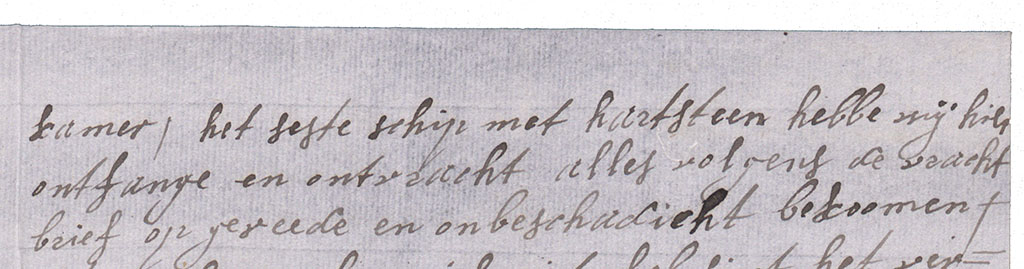 kamer / het seste schip met hartsteen hebbe wij hier
ontfange en ontvracht alles volgens de vracht
brief op gereede en onbeschadicht bekoomen /
het ver=